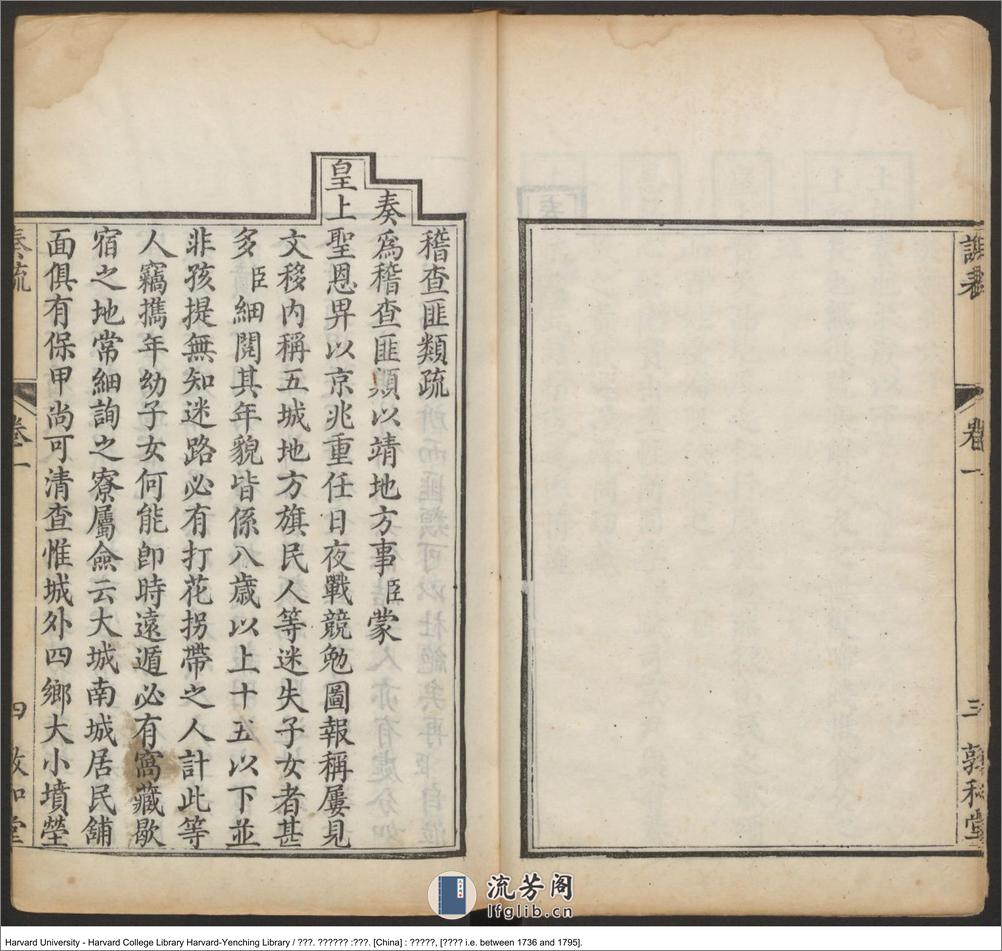 卷一
三 敦和堂
稽查匪類疏
奏爲稽查匪類以靖地方事臣蒙
皇上聖恩畀以京兆重任日夜戰競勉圖報稱屢見
文移內稱五城地方旗民人等迷失子女者甚
多臣細閱其年貌皆係八歲以上十五以下並
非孩提無知迷路必有打花拐帶之人計此等
人竊攜年幼子女何能卽時遠遁必有窩藏歇
宿之地常細詢之寮屬僉云大城南城居民舖
面俱有保甲尚可清查惟城外四鄉大小墳塋
奏疏
卷一
四 敦和堂
流芳阁
lfglib.cn
Harvard University - Harvard College Library Harvard-Yenching Library / ???. ?????? :???. [China] : ?????, [???? i.e. between 1736 and 1795].